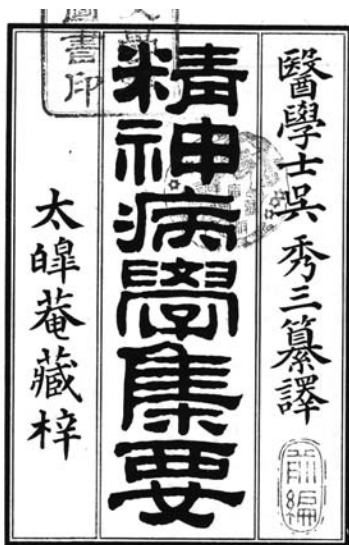 醫學士吳秀三纂譯
前編
精神病學集要
太皞菴藏梓
圖書印